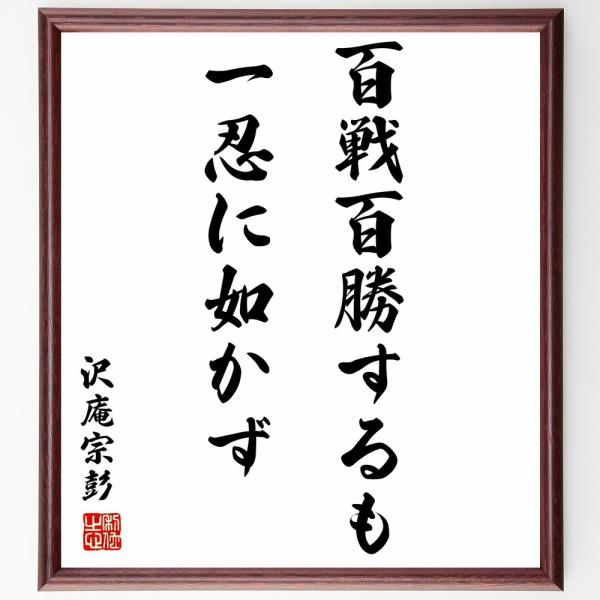 百戦百勝するも
一忍に如かず
沢庵宗彭